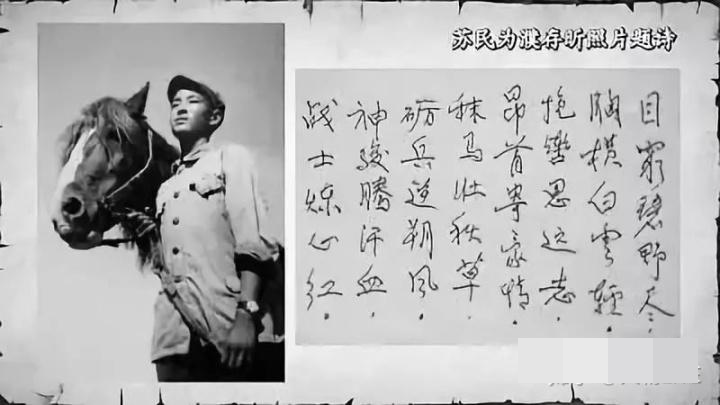 苏民为濮存昕照片题诗
目穷碧野尽，
胸横白云轻。
挽辔思远志，
昂首寄豪情。
秣马壮秋草，
砺兵迎朔风。
神骏腾汗血，
战士炼心红。